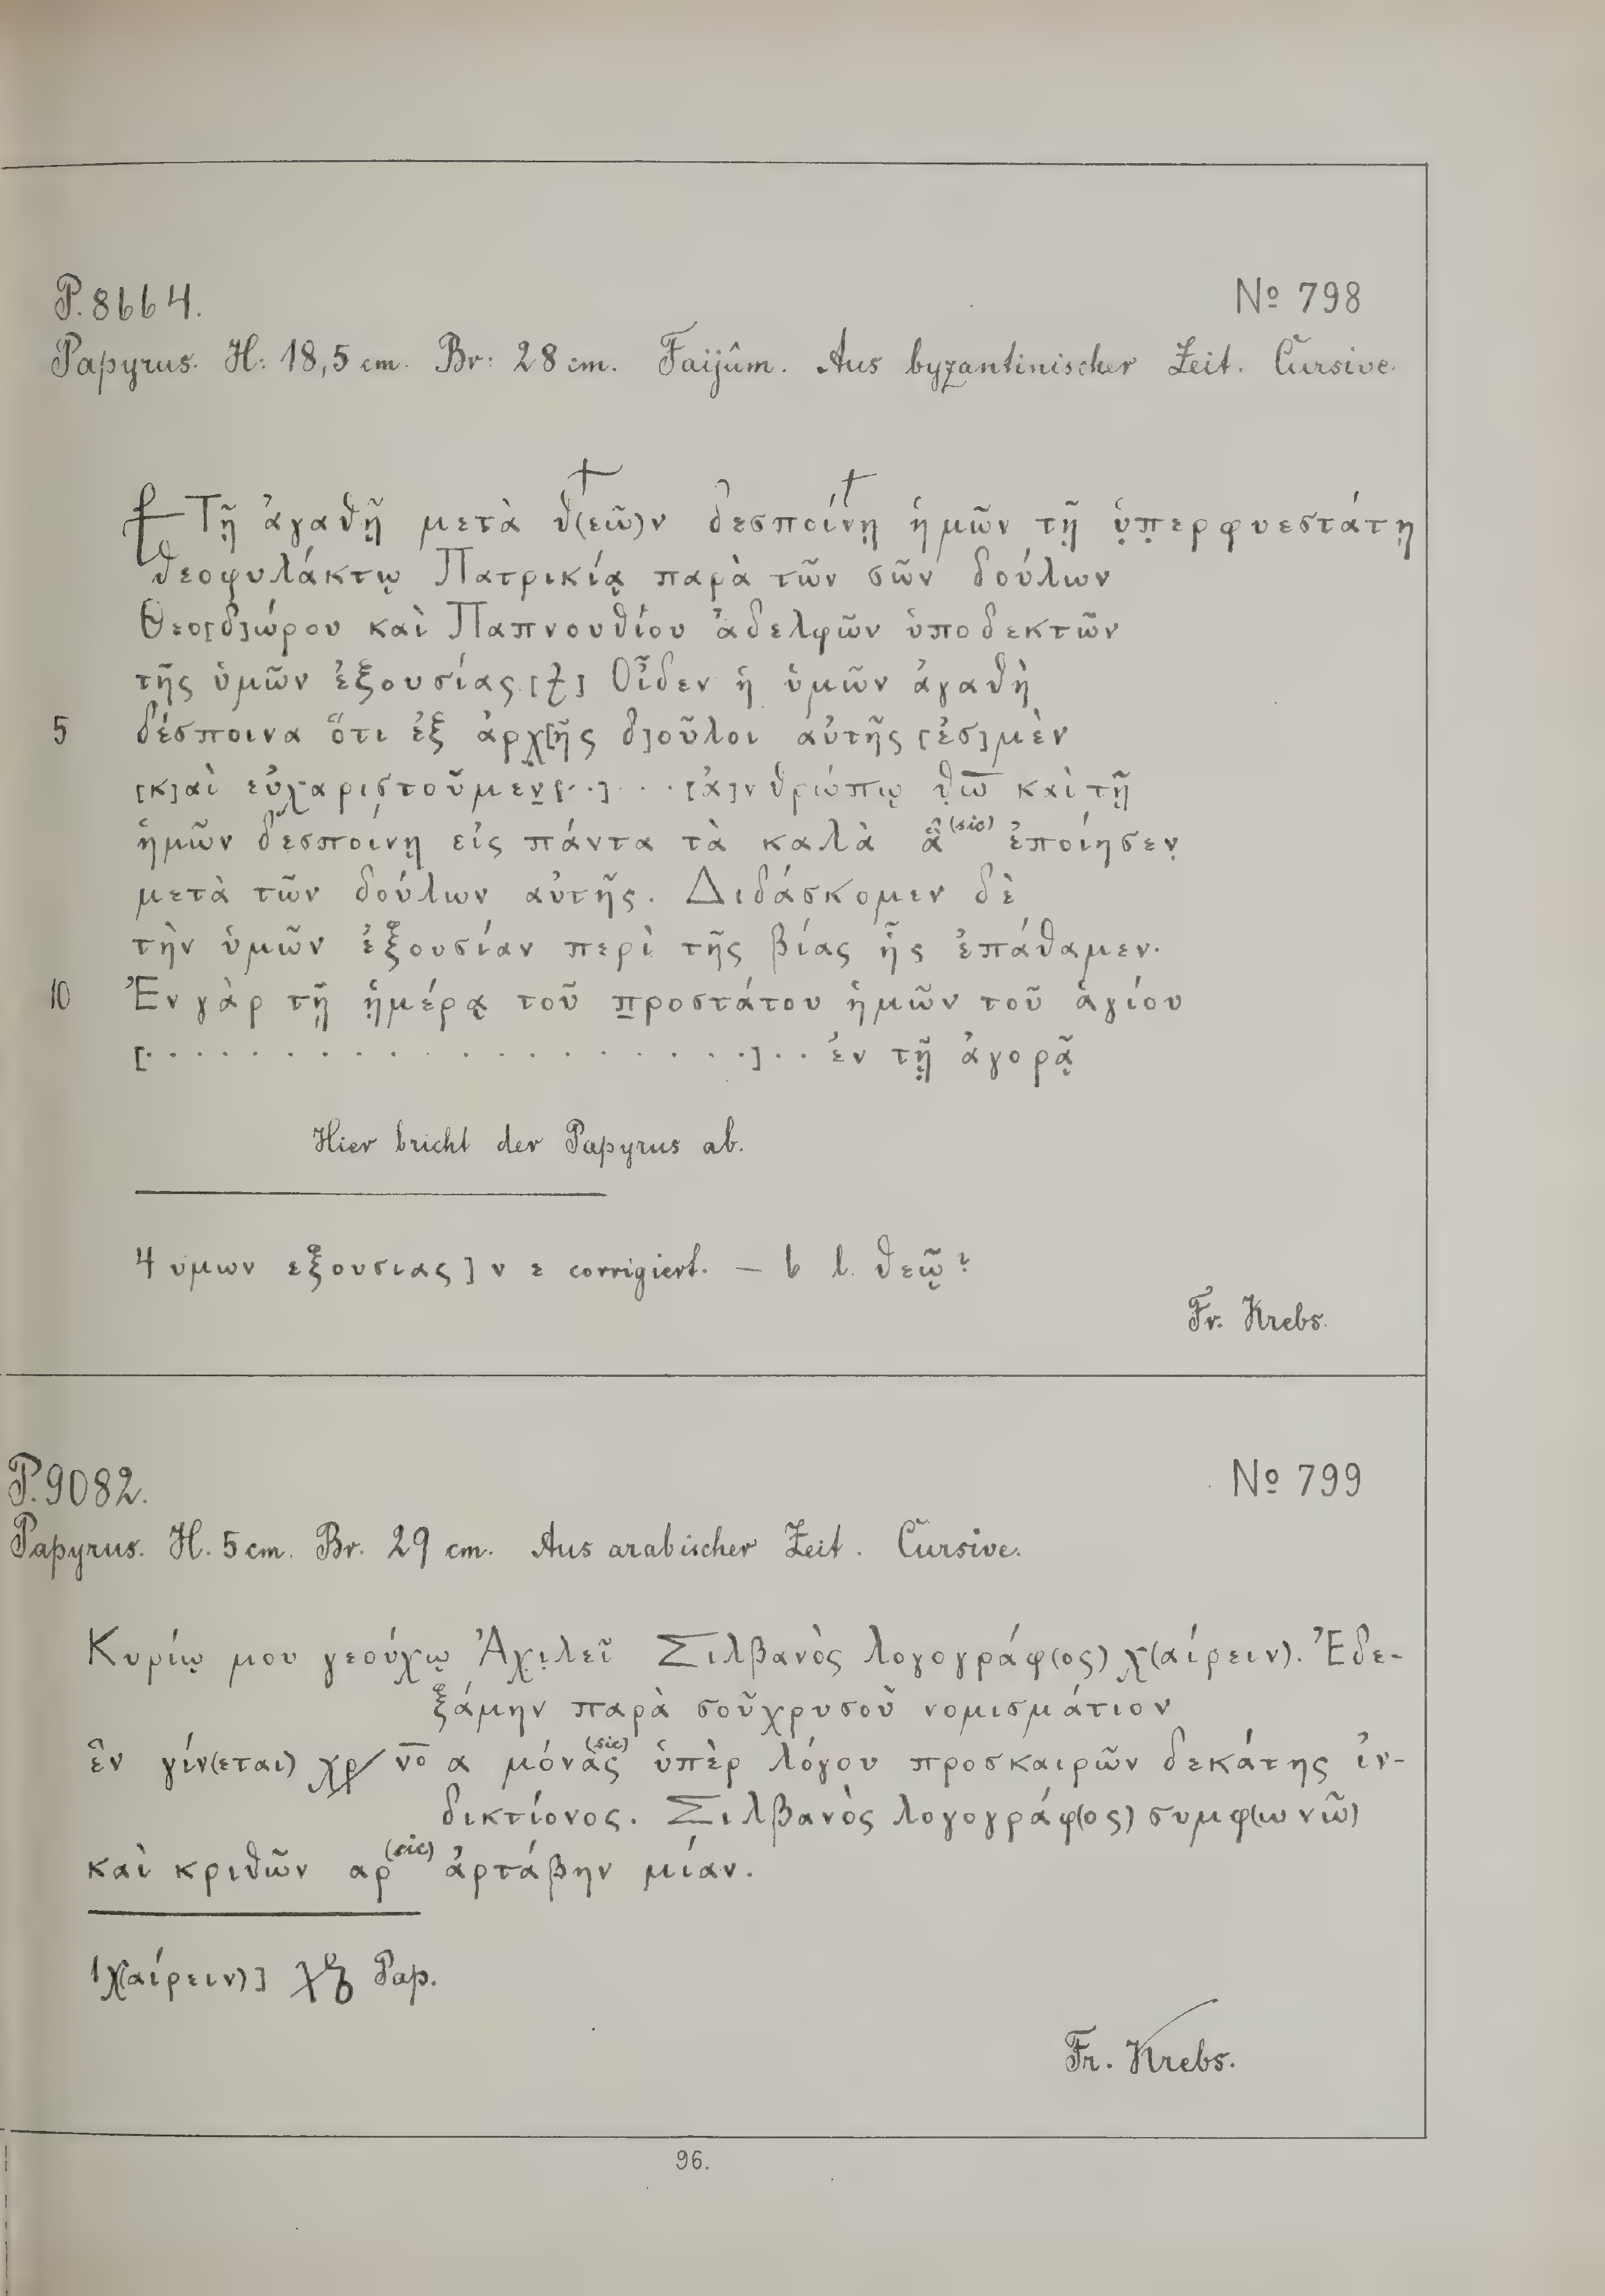 P. 8664. № 798
Papyrus. H: 18,5 cm. Br: 28 cm. Faijûm. Aus byzantinischer Zeit. Cursive.
† †
⳨ Τῇ ἀγαθῇ μετὰ θ(εὼ)ν δεσποίνῃ ἡμῶν τῇ ὑ̣π̣ερφυεστάτῃ
θεοφυλάκτῳ Πατρικίᾳ παρὰ τῶν σῶν δούλων
Θεο[δ]ώρου καὶ Παπνουθίου ἀδελφῶν ὑποδεκτῶν
τῆς ὑμῶν ἐξουσίας. [ξ] Οἶδεν ἡ ὑμῶν ἀγαθὴ
5 δέσποινα ὅτι ἐξ ἀρχ[ῆς δ]οῦλοι αὐτῆς [ἐσ]μὲν
[κ]αὶ εὐχαριστοῦμεν̣[..] . . [ἀ]νθρώπῳ θ̣ω̅ καὶ τῇ
ἡμῶν δεσποίνῃ εἰς πάντα τὰ καλὰ ἃ (sic) ἐποίησεν̣
μετὰ τῶν δούλων αὐτῆς. Διδάσκομεν δὲ
τὴν ὑμῶν ἐξουσίαν περὶ τῆς βίας ἧς ἐπάθαμεν.
10 Ἐν γὰρ τῇ ἡ̣μέρᾳ τοῦ π̣ροστάτου ἡμῶν τοῦ ἁγίου
[. . . . . . . . . . . . . . . . . .] . . ἐν τῇ̣ ἀγορᾷ
Hier bricht der Papyrus ab.
4 υμων εξουσιας] ν ε corrigiert. — 6 l. θεῷ?
Fr. Krebs.
P. 9082. № 799
Papyrus. H. 5 cm. Br. 29 cm. Aus arabischer Zeit. Cursive.
Κυρίῳ μου γεούχῳ Ἀχι̣λεῖ Σιλβανὸς λογογράφ(ος) χ(αίρειν). Ἐδε-
ξάμην παρὰ σοῦ χρυσοῦ νομισμάτιον
ἓν γίν(εται) χρ/ νο̅ α μόνας (sic) ὑπὲρ λόγου προσκαιρῶν δεκάτης ἰν-
δικτίονος. Σιλβανὸς λογογράφ(ος) συμφ(ωνῶ)
καὶ κριθῶν αρ (sic) ἀρτάβην μίαν.
1 χ(αίρειν)] Pap.
Fr. Krebs.
96.